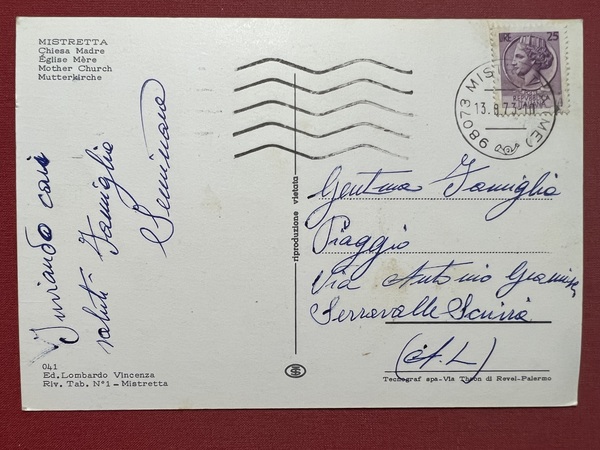 MISTRETTA
Chiesa Madre
Église Mère
Mother Church
Mutterkirche
Inviando cari
saluti Famiglia
Seminara
041
Ed. Lombardo Vincenza
Riv. Tab. N°1 - Mistretta
riproduzione vietata
LIRE 25
98073 MISTRETTA (ME)
13.8.73
Gent.ma Famiglia
Piaggio
Via Antonio
Serravalle Scrivia
(A.L)
Tecnograf spa - Via Thaon di Revel - Palermo